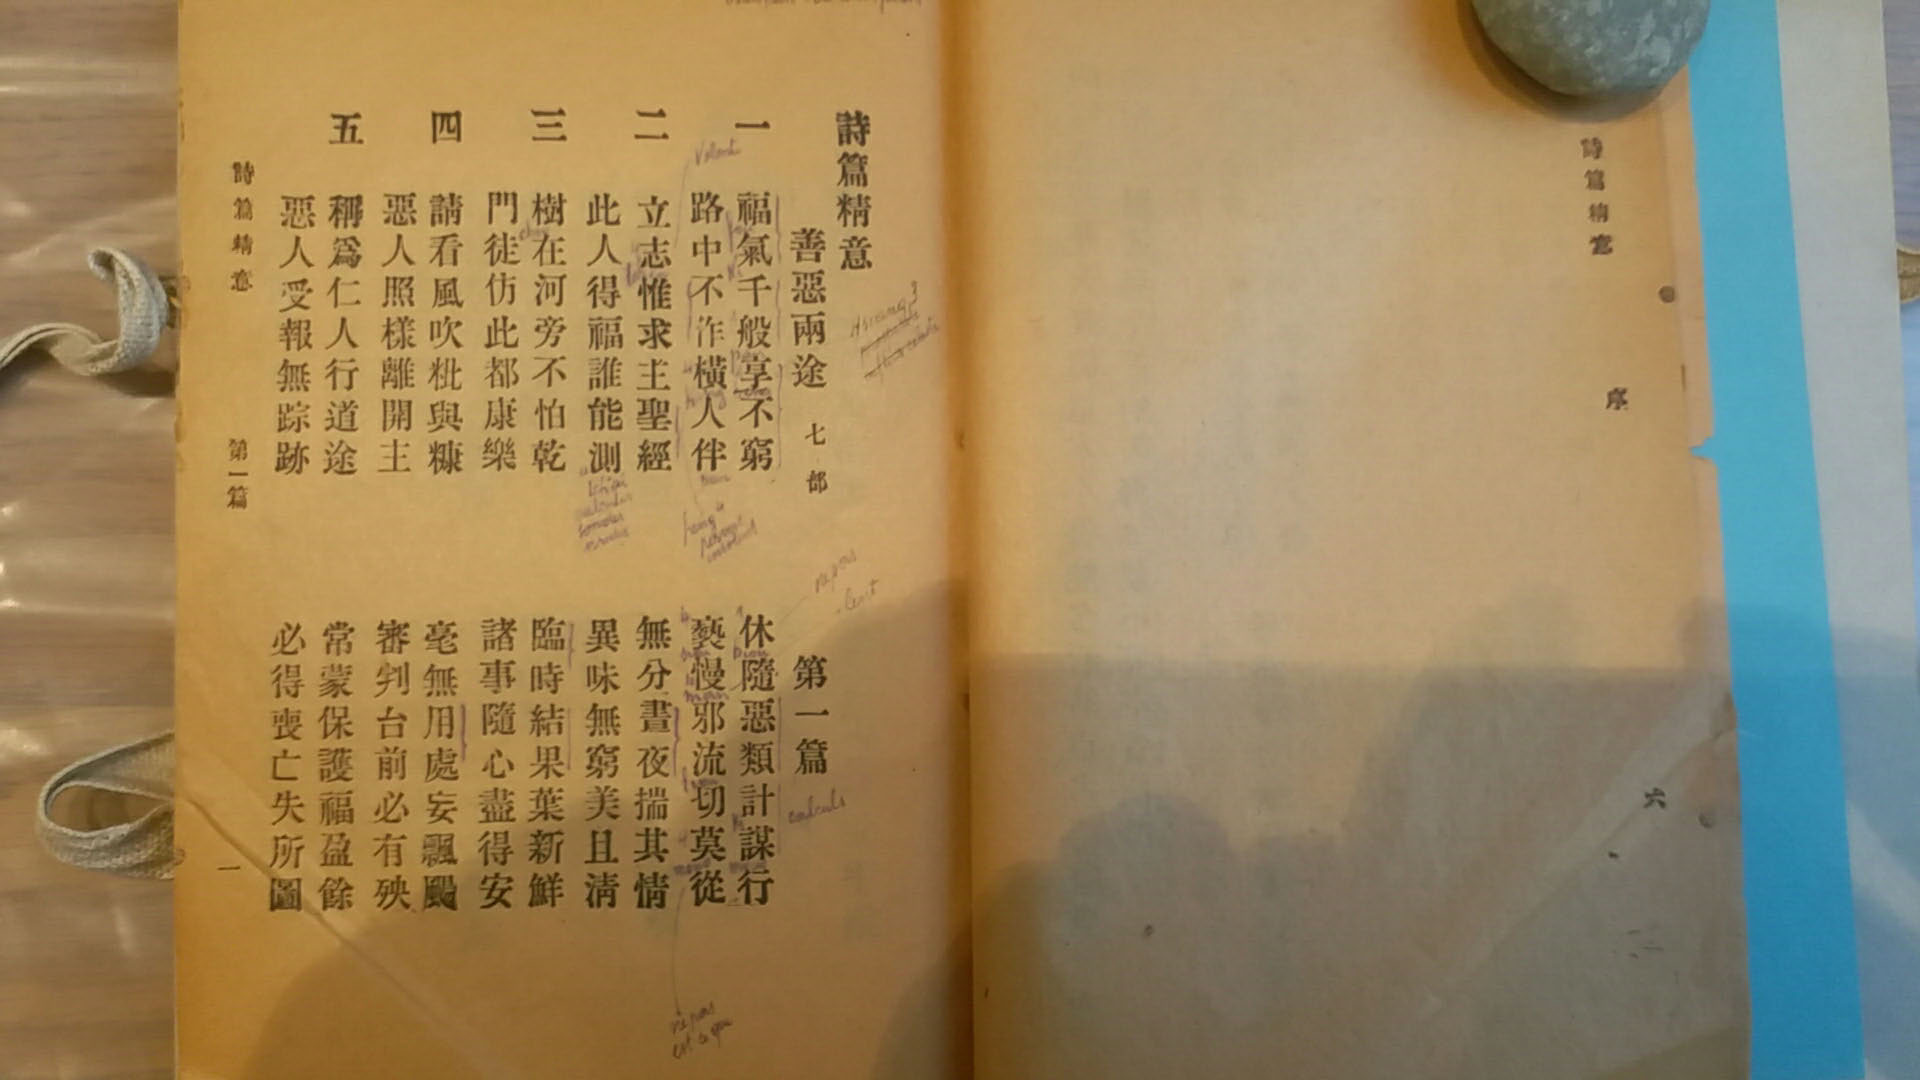 詩篇精意
序
六
詩篇精意
善惡兩途 七部 第一篇
一 福氣千般享不窮 休隨惡類計謀行
路中不作橫人伴 褻慢邪流切莫從
二 立志惟求主聖經 無分晝夜揣其情
此人得福誰能測 異味無窮美且清
三 樹在河旁不怕乾 臨時結果葉新鮮
門徒仿此都康樂 諸事隨心盡得安
四 請看風吹粃與糠 毫無用處妄飄颺
惡人照樣離開主 審判台前必有殃
五 稱爲仁人行道途 常蒙保護福盈餘
惡人受報無踪跡 必得喪亡失所圖
詩篇精意 第一篇 一
Hsiang 3
repos